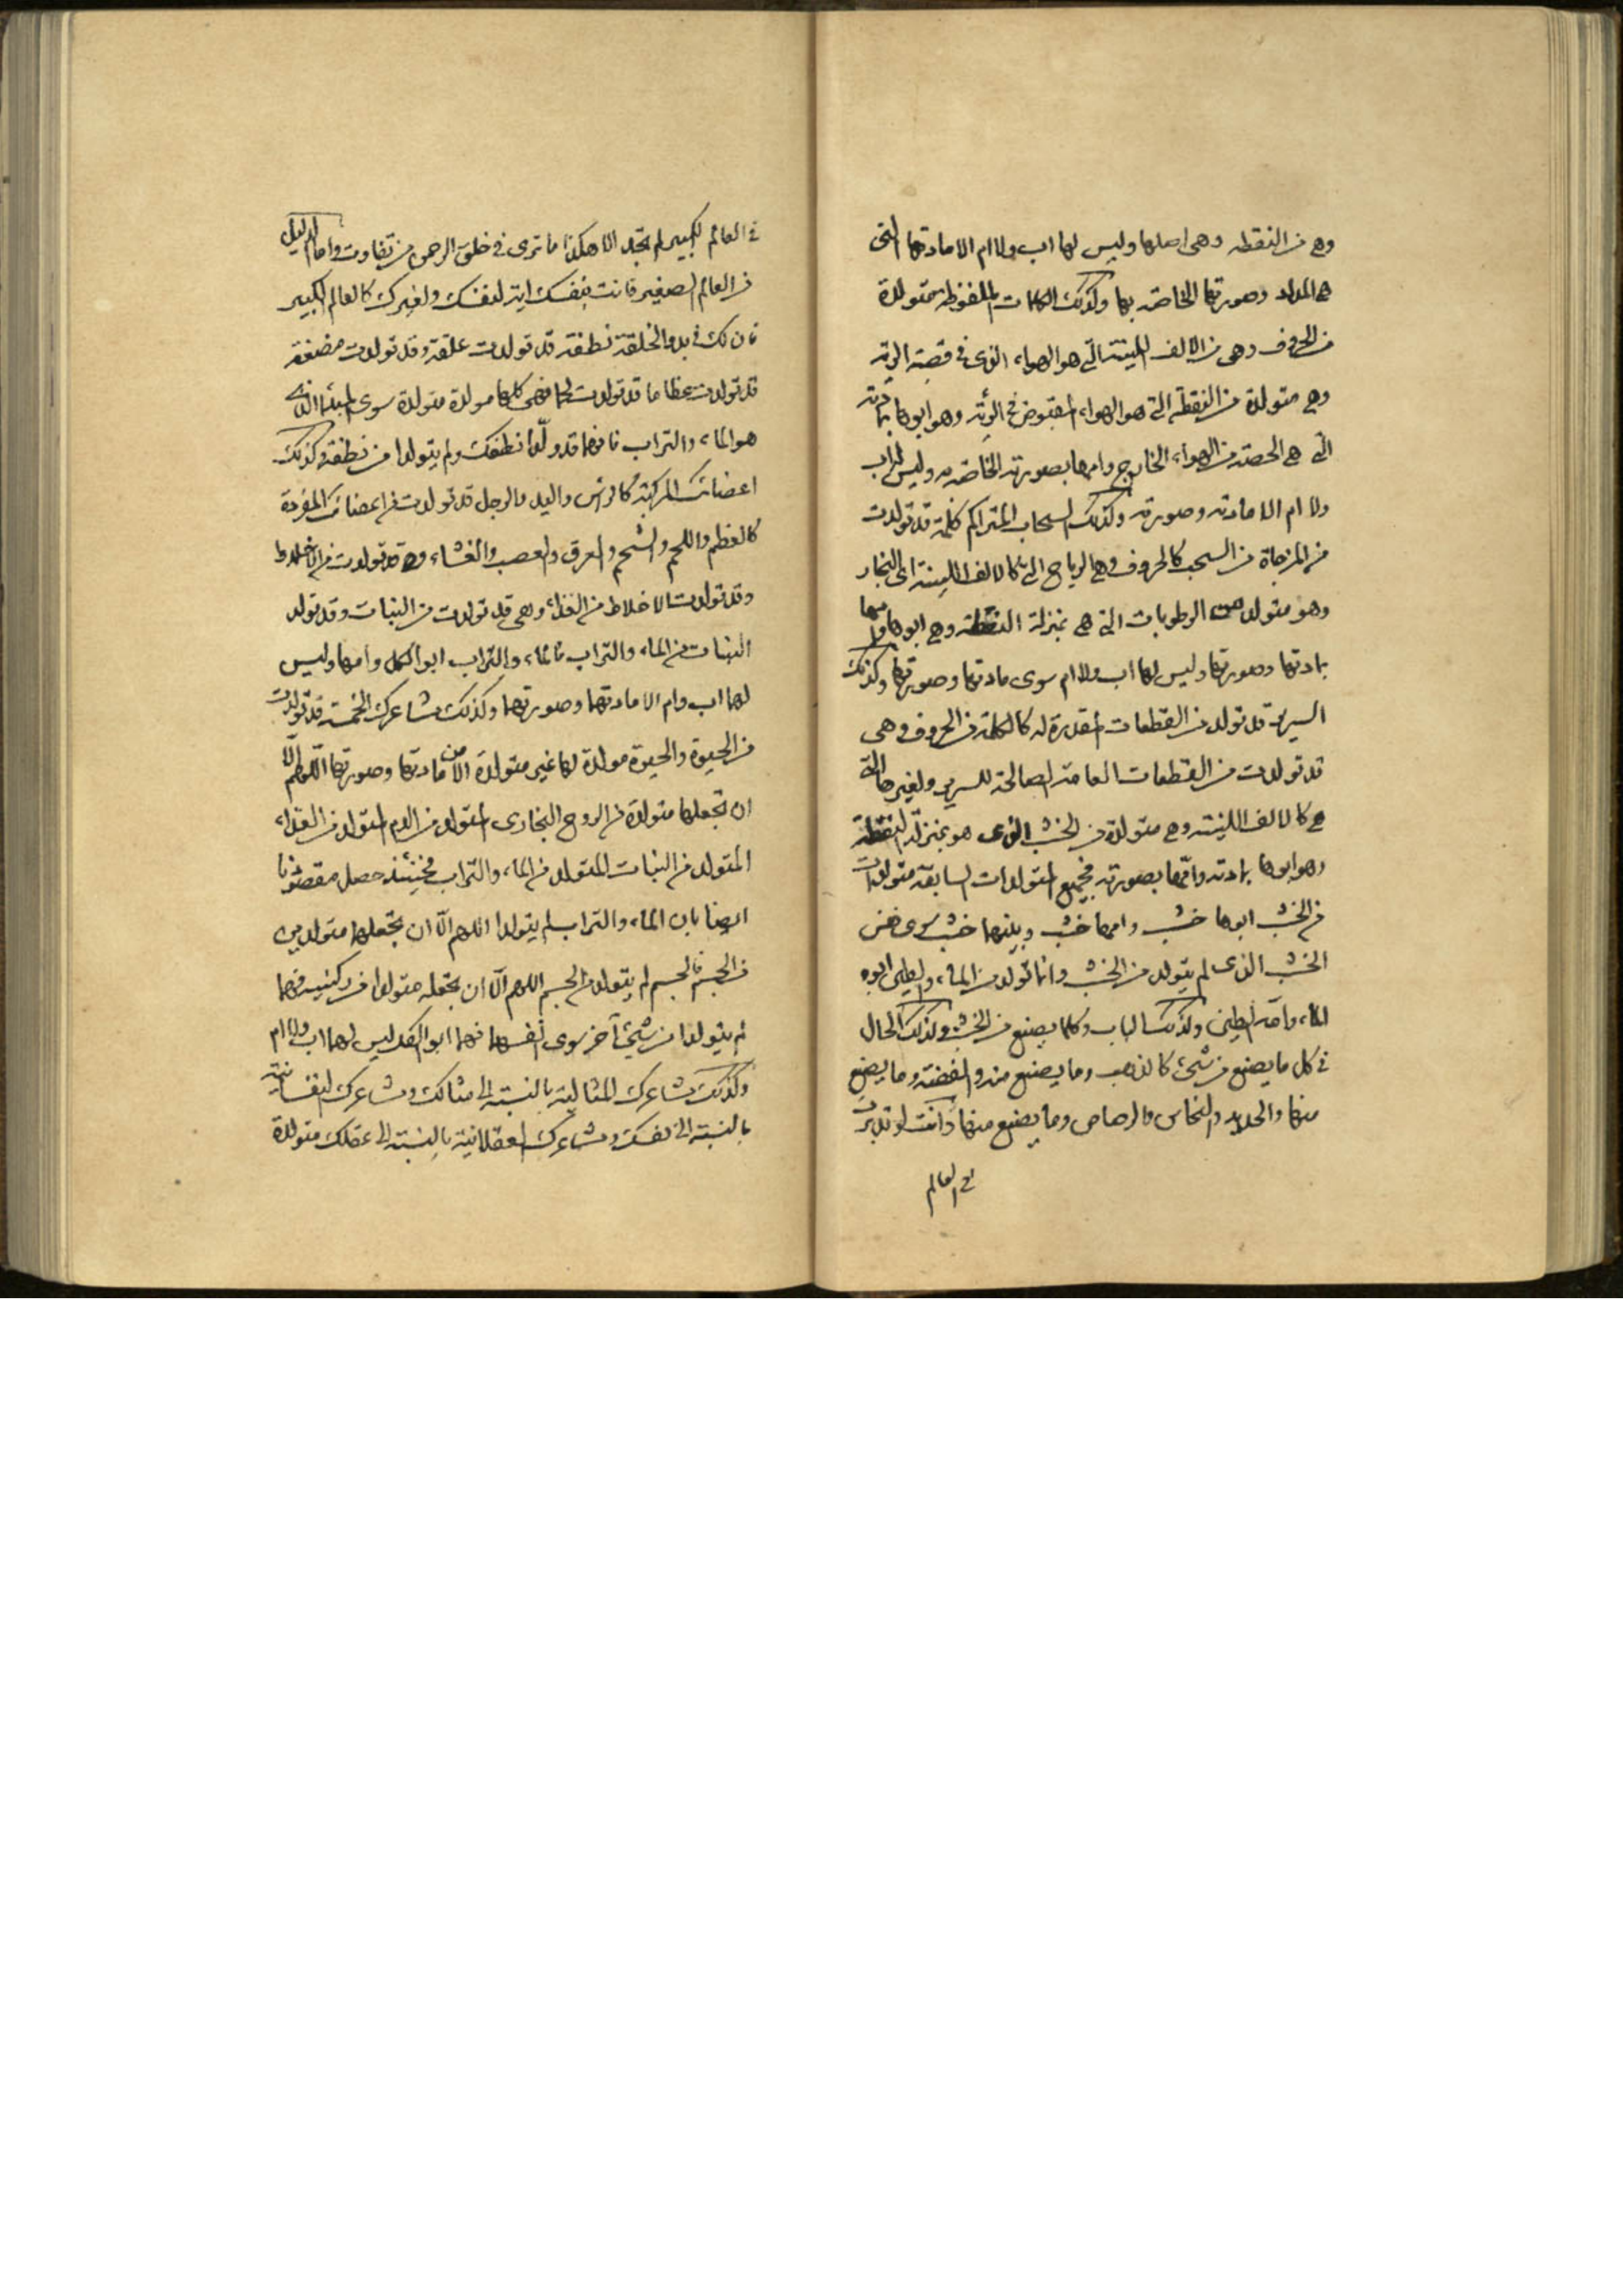 وهي من النقطه وهي اصلها وليس لها اب ولا ام الا مادتها التي
هي المداد وصورتها الخاصه بها وكذلك الكلمات الملفوظه متولدة
من الحروف وهي من الالف اللينة التي هو الهواء الذي في قصبة الريه
وهي متولدة من النقطه التي هو الهواء المقبوض في الرئه وهو ابوها بمادته
التي هي الحصة من الهواء الخارج وامها بصورته الخاصة به وليس له اب
ولا ام الا مادته وصورته وكذلك السحاب المتراكم كلمة قد تولدت
من المزجاة من السحب كالحروف وهي الرياح التي كالالف اللينة اي البخار
وهو متولد من الرطوبات التي هي بمنزلة النقطة وهي ابوها وامها
بمادتها وصورتها وليس لها اب ولا ام سوى مادتها وصورتها وكذلك
السرير قد تولد من القطعات المقدرة له كالكلمة من الحروف وهي
قد تولدت من القطعات العامة الصالحة للسرير ولغيرها التي
هي كالالف اللينة وهي متولدة من الخشب الذي هو بمنزلة النقطة
وهو ابوها بمادته وامها بصورته فجميع المتولدات السابقة متولدات
من الخشب ابوها خشب وامها خشب وبينهما خشب سوى نفس
الخشب الذي لم يتولد من الخشب وانما تولد من الماء والطين ابوه
الماء وامه الطين وكذلك الباب وكلما يصنع من الخشب وكذلك الحال
في كل ما يصنع من شيء كالذهب وما يصنع منه والفضة وما يصنع
منها والحديد والنحاس والرصاص وما يصنع منها وانت لو تدبرت
في العالم
في العالم الكبير لم تجد الا هكذا ما ترى في خلق الرحمن من تفاوت واما الدليل
من العالم الصغير فانت بنفسك اية لنفسك ولغيرك كالعالم الكبير
فان لك في بدو الخلقة نطفة قد تولدت علقة وقد تولدت مضغة
قد تولدت عظاما قد تولدت لحما فهي كلها مولدة متولدة سوى المبدء الذي
هو الماء والتراب فانهما قد ولدا نطفتك ولم يتولدا من نطفة وكذلك
اعضائك المركبة كالراس واليد والرجل قد تولدت من اعضائك المفردة
كالعظم واللحم والشحم والعرق والعصب والغشاء وهي قد تولدت من الاخلاط
وقد تولدت الاخلاط من الغذاء وهي قد تولدت من النبات وقد تولد
النبات من الماء والتراب فالماء والتراب ابو الكل وامها وليس
لهما اب وام الا مادتهما وصورتهما وكذلك مشاعرك الخمسة قد تولدت
من الحيوة والحيوة مولدة لها غير متولدة الا من مادتها وصورتها اللهم الا
ان تجعلها متولدة من الروح البخاري المتولد من الدم المتولد من الغذاء
المتولد من النبات المتولد من الماء والتراب فحينئذ حصل مقصودنا
ايضا بان الماء والتراب لم يتولدا اللهم الا ان تجعلهما متولدين
من الجسم فالجسم لم يتولد من الجسم اللهم الا ان تجعله متولدا من ركنيه فهما
لم يتولدا من شيء آخر سوى انفسهما فهما ابو الكل ليس لهما اب ولا ام
وكذلك مشاعرك المثالية بالنسبة الى مثالك ومشاعرك النفسانية
بالنسبة الى نفسك ومشاعرك العقلانية بالنسبة الى عقلك متولدة